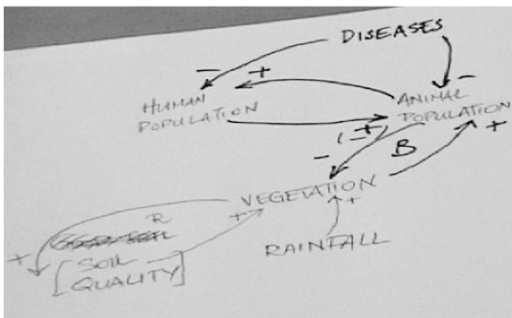 DISEASES
HUMAN
POPULATION
ANIMAL
POPULATION
B
VEGETATION
R
SOIL
QUALITY
RAINFALL